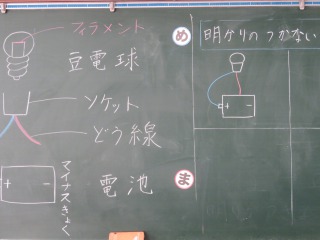 フィラメント
豆電球
ソケット
どう線
+ -
電池
マイナスきょく
め
明かりのつかない
+ -
ま